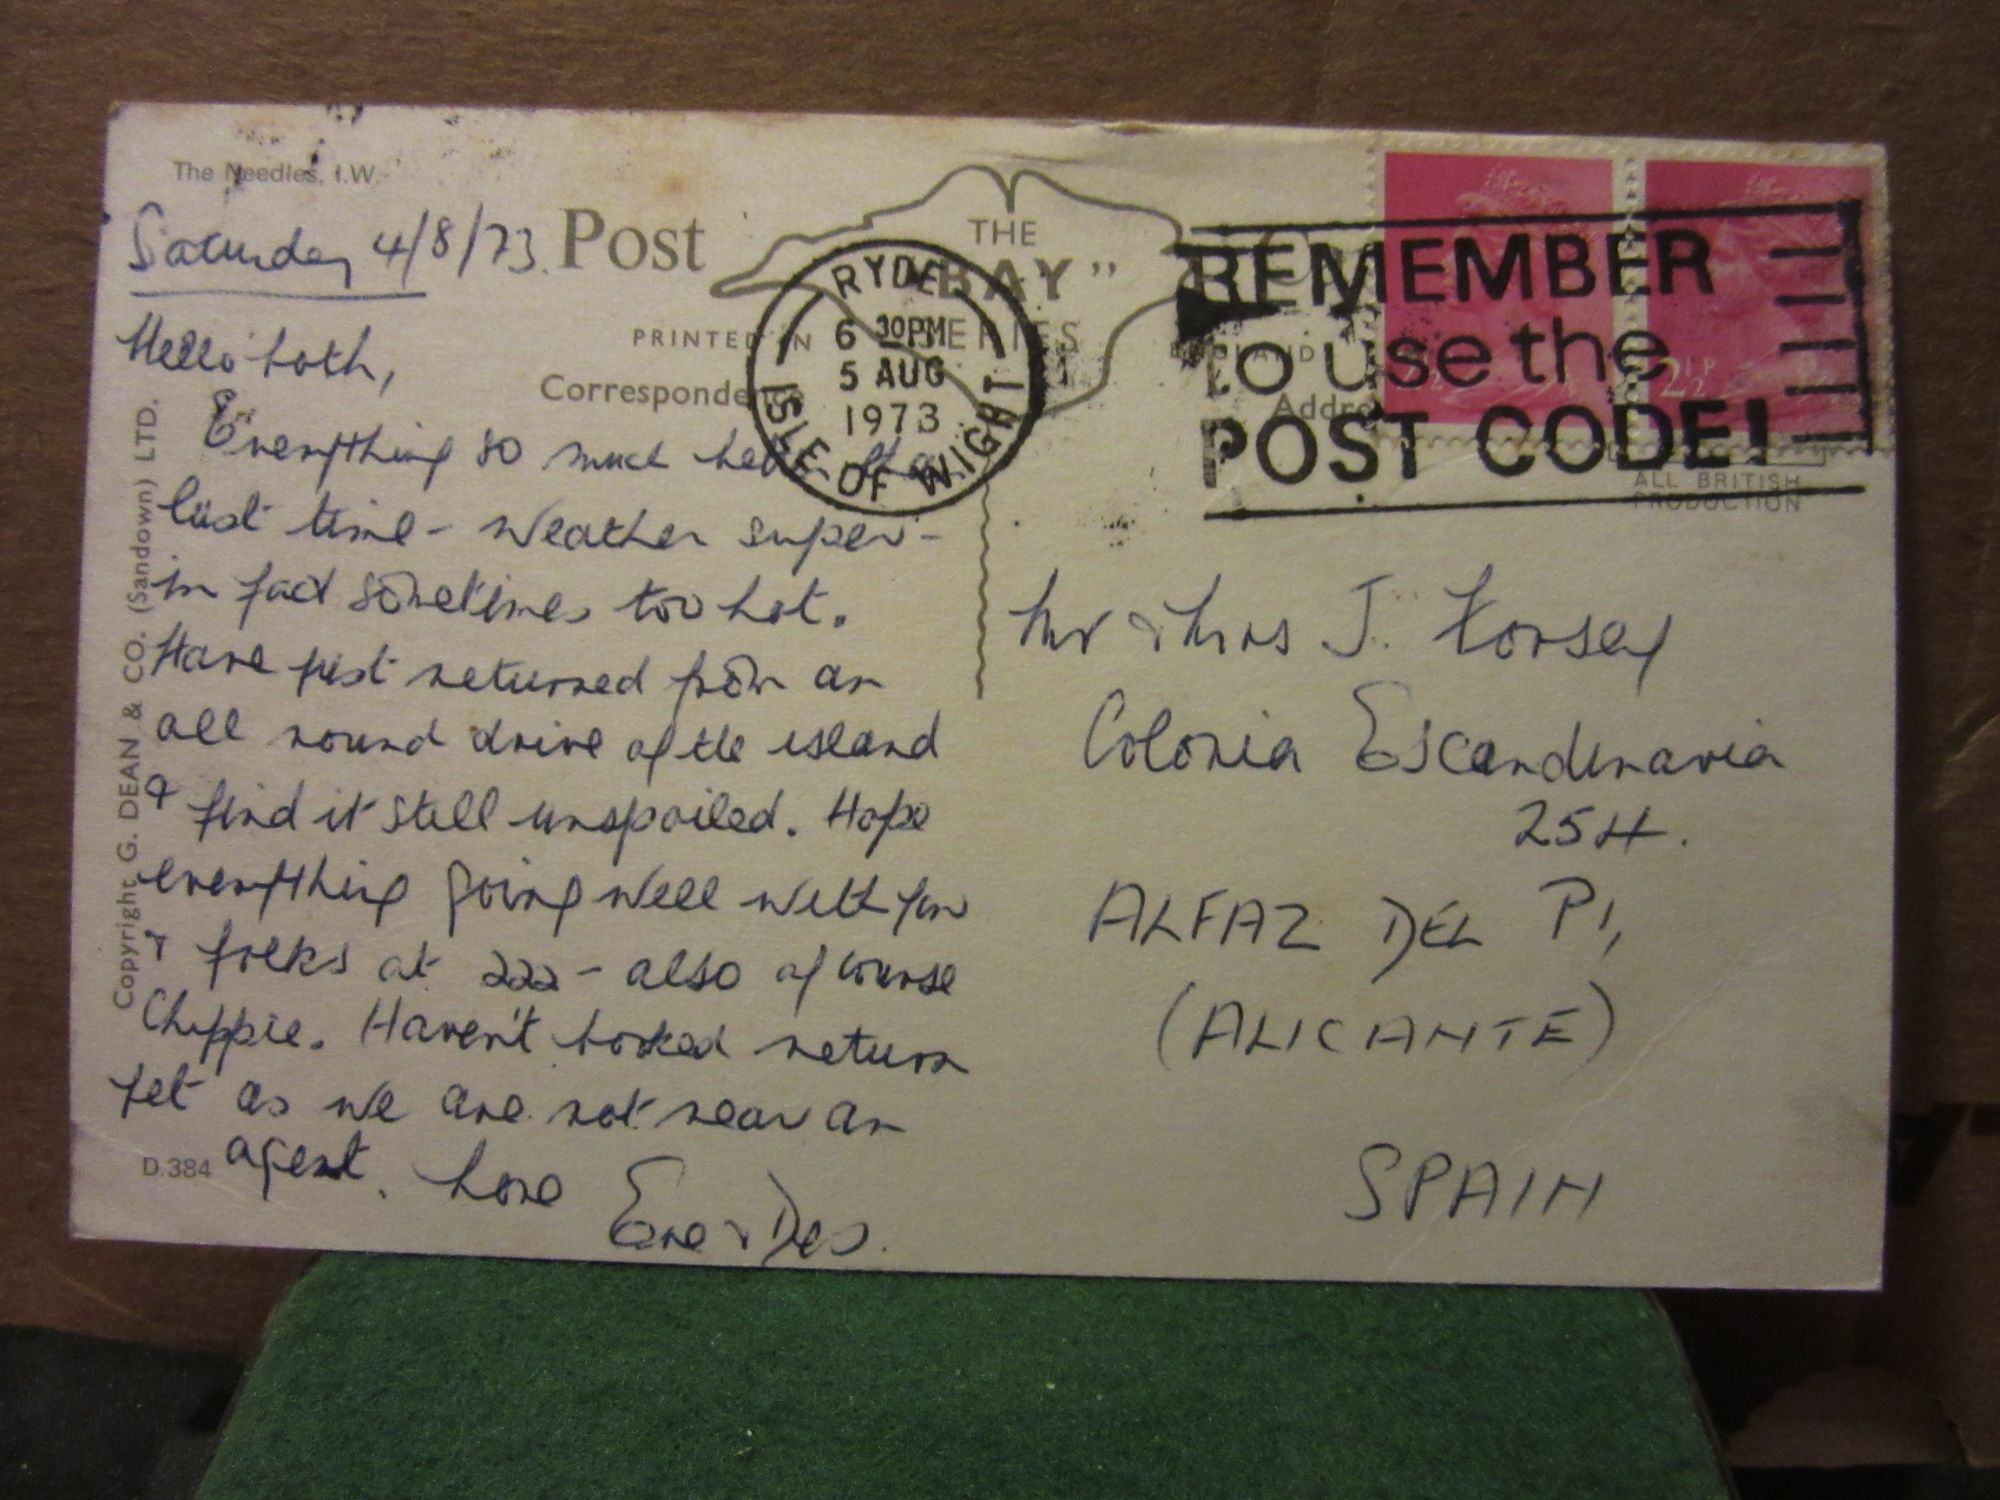 The Needles, I.W.
Saturday 4/8/73.
Post
THE
"BAY"
SERIES
PRINTED IN
ENGLAND
Correspondence
Address
RYDE
6 30PM
5 AUG
1973
ISLE OF WIGHT
REMEMBER
to use the
POST CODE!
2½P
ALL BRITISH
PRODUCTION
Hello both,
Everything so much better than
last time - weather super -
in fact sometimes too hot.
Have just returned from an
all round drive of the island
& find it still unspoiled. Hope
everything going well with you
& folks at 222 - also of course
Chippie. Haven't booked return
yet as we are not near an
agent. Love
Eve & Des.
Mr & Mrs J.
Colonia Escandinavia
25H.
ALFAZ DEL PI,
(ALICANTE)
SPAIN
Copyright G. DEAN & CO. (Sandown) LTD.
D.384